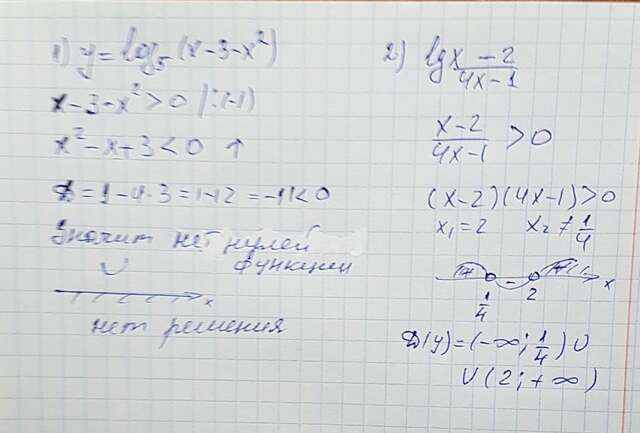 1) y = log₅ (x-3-x²)
x-3-x² > 0 |:(-1)
x²-x+3 < 0 ↑
D = 1-4·3 = 1-12 = -11 < 0
Значит нет нулей
функции
x
нет решения
2) lg (x-2)/(4x-1)
(x-2)/(4x-1) > 0
(x-2)(4x-1) > 0
x₁ = 2 x₂ ≠ 1/4
+ - + x
1/4 2
D(y) = (-∞; 1/4) ∪
∪ (2; +∞)